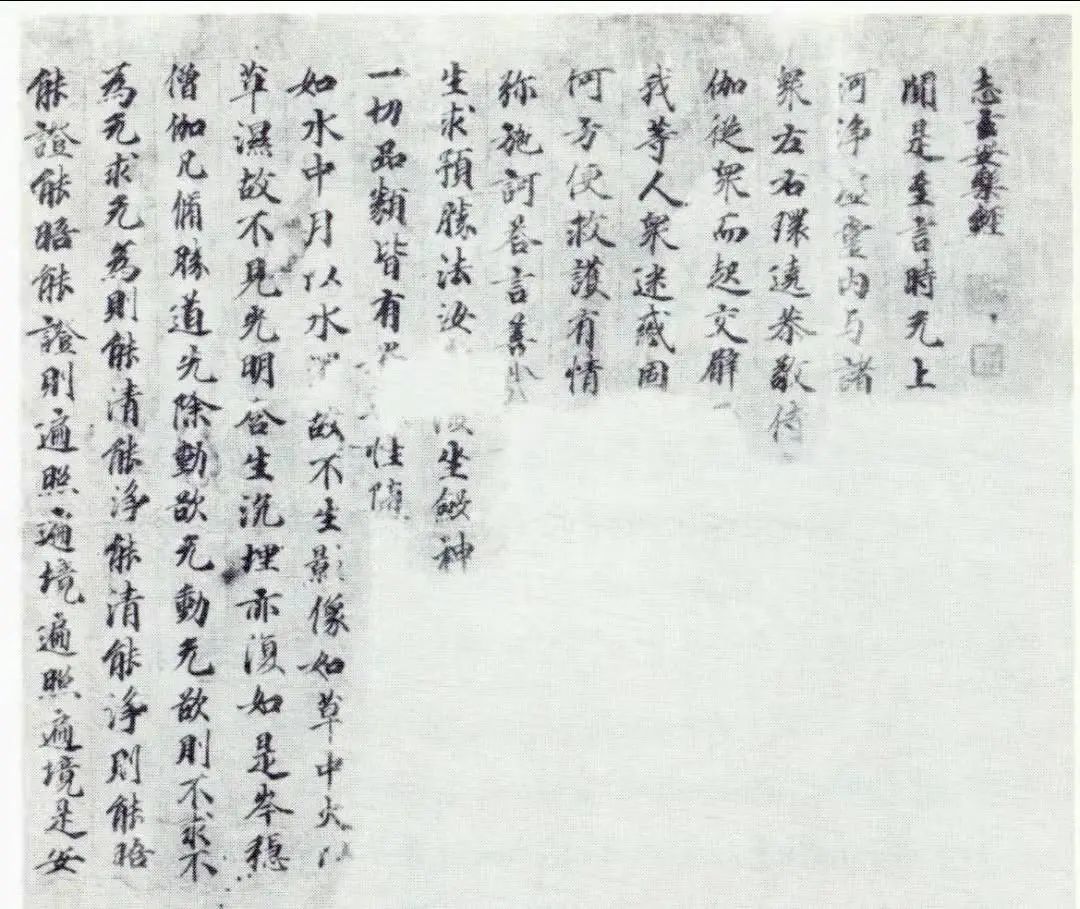 志玄安樂經
聞是至言時无上
河淨虛堂內与諸
衆左右環遶恭敬侍
伽從衆而起交臂
我等人衆迷惑固
何方便救護有情
弥施訶荅言善
生求預勝法汝 復坐斂神
一切品類皆有 性隨
如水中月以水 故不生影像如草中火以
草濕故不見光明含生沉埋亦復如是岑穩
僧伽凡修勝道先除動欲无動无欲則不求不
為无求无為則能清能淨能清能淨則能晤
能證能晤能證則遍照遍境遍照遍境是安